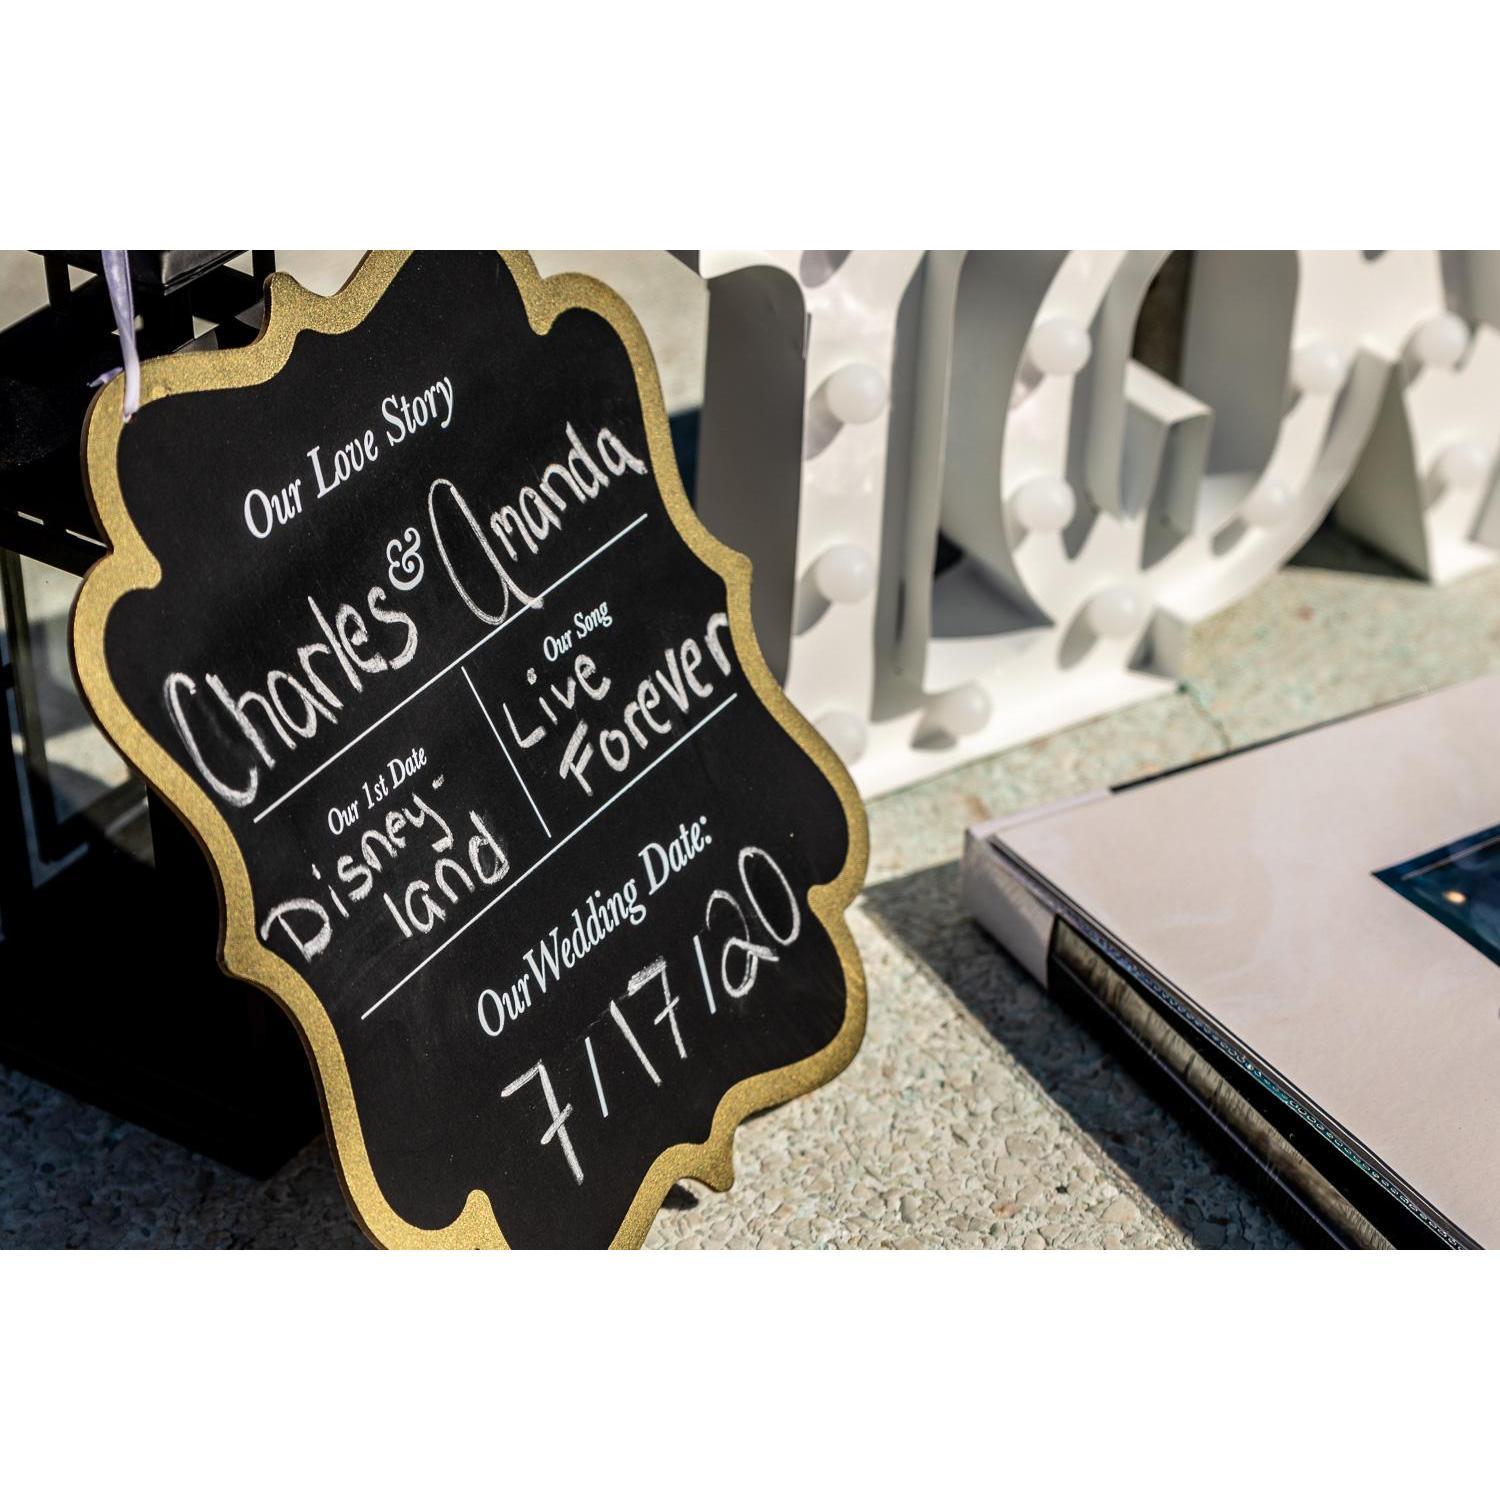 Our Love Story
Charles & Amanda
Our 1st Date
Disney-
land
Our Song
Live
Forever
Our Wedding Date:
7/17/20